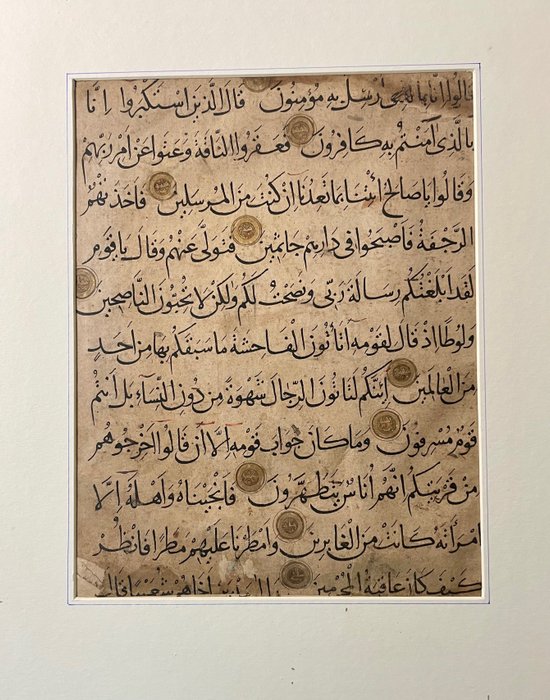 قَالُوا إِنَّا بِمَا أُرْسِلَ بِهِ مُؤْمِنُونَ قَالَ الَّذِينَ اسْتَكْبَرُوا إِنَّا
بِالَّذِي آمَنْتُمْ بِهِ كَافِرُونَ فَعَقَرُوا النَّاقَةَ وَعَتَوْا عَنْ أَمْرِ رَبِّهِمْ
وَقَالُوا يَا صَالِحُ ائْتِنَا بِمَا تَعِدُنَا إِنْ كُنْتَ مِنَ الْمُرْسَلِينَ فَأَخَذَتْهُمُ
الرَّجْفَةُ فَأَصْبَحُوا فِي دَارِهِمْ جَاثِمِينَ فَتَوَلَّى عَنْهُمْ وَقَالَ يَا قَوْمِ
لَقَدْ أَبْلَغْتُكُمْ رِسَالَةَ رَبِّي وَنَصَحْتُ لَكُمْ وَلَكِنْ لَا تُحِبُّونَ النَّاصِحِينَ
وَلُوطًا إِذْ قَالَ لِقَوْمِهِ أَتَأْتُونَ الْفَاحِشَةَ مَا سَبَقَكُمْ بِهَا مِنْ أَحَدٍ
مِنَ الْعَالَمِينَ إِنَّكُمْ لَتَأْتُونَ الرِّجَالَ شَهْوَةً مِنْ دُونِ النِّسَاءِ بَلْ أَنْتُمْ
قَوْمٌ مُسْرِفُونَ وَمَا كَانَ جَوَابَ قَوْمِهِ إِلَّا أَنْ قَالُوا أَخْرِجُوهُمْ
مِنْ قَرْيَتِكُمْ إِنَّهُمْ أُنَاسٌ يَتَطَهَّرُونَ فَأَنْجَيْنَاهُ وَأَهْلَهُ إِلَّا
امْرَأَتَهُ كَانَتْ مِنَ الْغَابِرِينَ وَأَمْطَرْنَا عَلَيْهِمْ مَطَرًا فَانْظُرْ
كَيْفَ كَانَ عَاقِبَةُ الْمُجْرِمِينَ وَإِلَى مَدْيَنَ أَخَاهُمْ شُعَيْبًا قَالَ